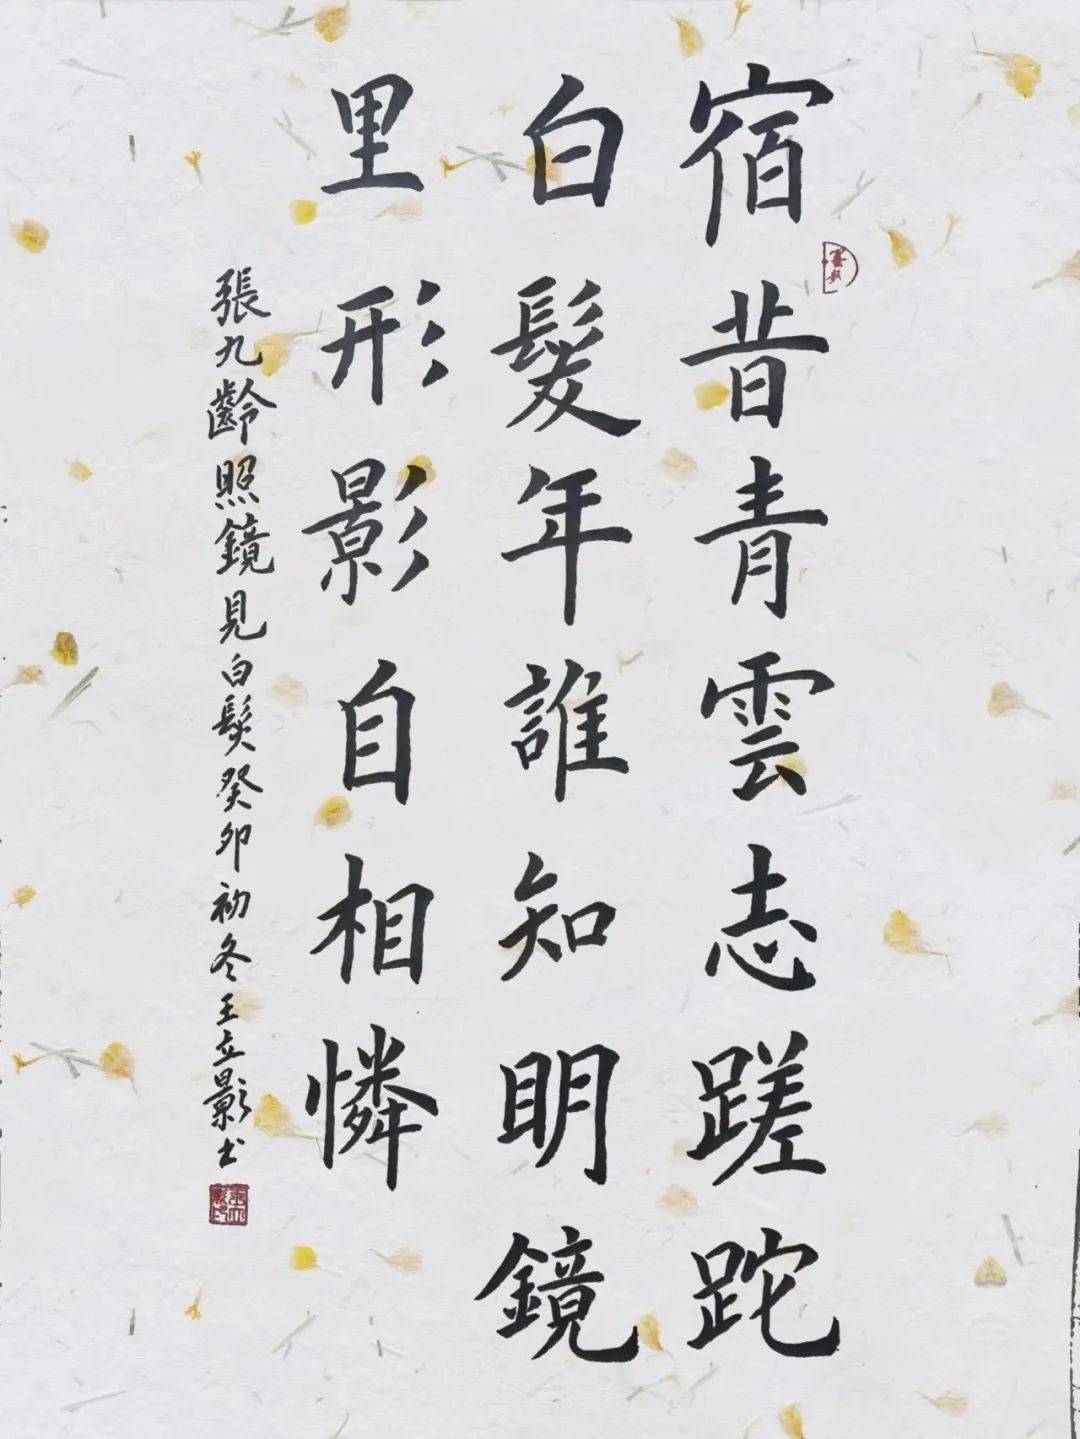 宿昔青雲志蹉跎
白髮年誰知明鏡
里形影自相憐
張九齡照鏡見白髮癸卯初冬王立影书